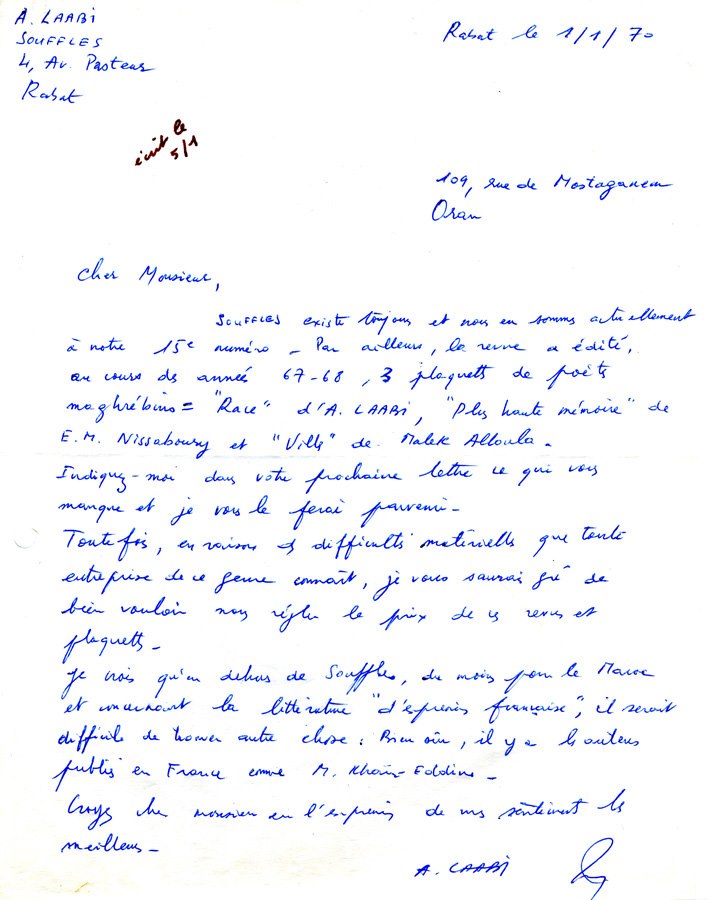 A. LAABI
SOUFFLES
4, Av. Pasteur
Rabat
Rabat le 1/1/70
écrit le
5/1
109, rue de Mostaganem
Oran
Cher Monsieur,
SOUFFLES existe toujours et nous en sommes actuellement
à notre 15e numéro _ Par ailleurs, la revue a édité,
au cours des années 67-68, 3 plaquettes de poètes
maghrébins = "Race" d'A. LAABI, "Plus haute mémoire" de
E.M. Nissaboury et "Villes" de Malek Alloula _
Indiquez-moi dans votre prochaine lettre ce qui vous
manque et je vous le ferai parvenir _
Toutefois, en raison des difficultés matérielles que toute
entreprise de ce genre connaît, je vous saurais gré de
bien vouloir nous régler le prix de ces revues et
plaquettes _
Je crois qu'en dehors de Souffles, du moins pour le Maroc
et concernant la littérature "d'expression française", il serait
difficile de trouver autre chose. Bien sûr, il y a les auteurs
publiés en France comme M. Khaïr-Eddine _
Croyez cher monsieur en l'expression de mes sentiments les
meilleurs _
A. LAABI